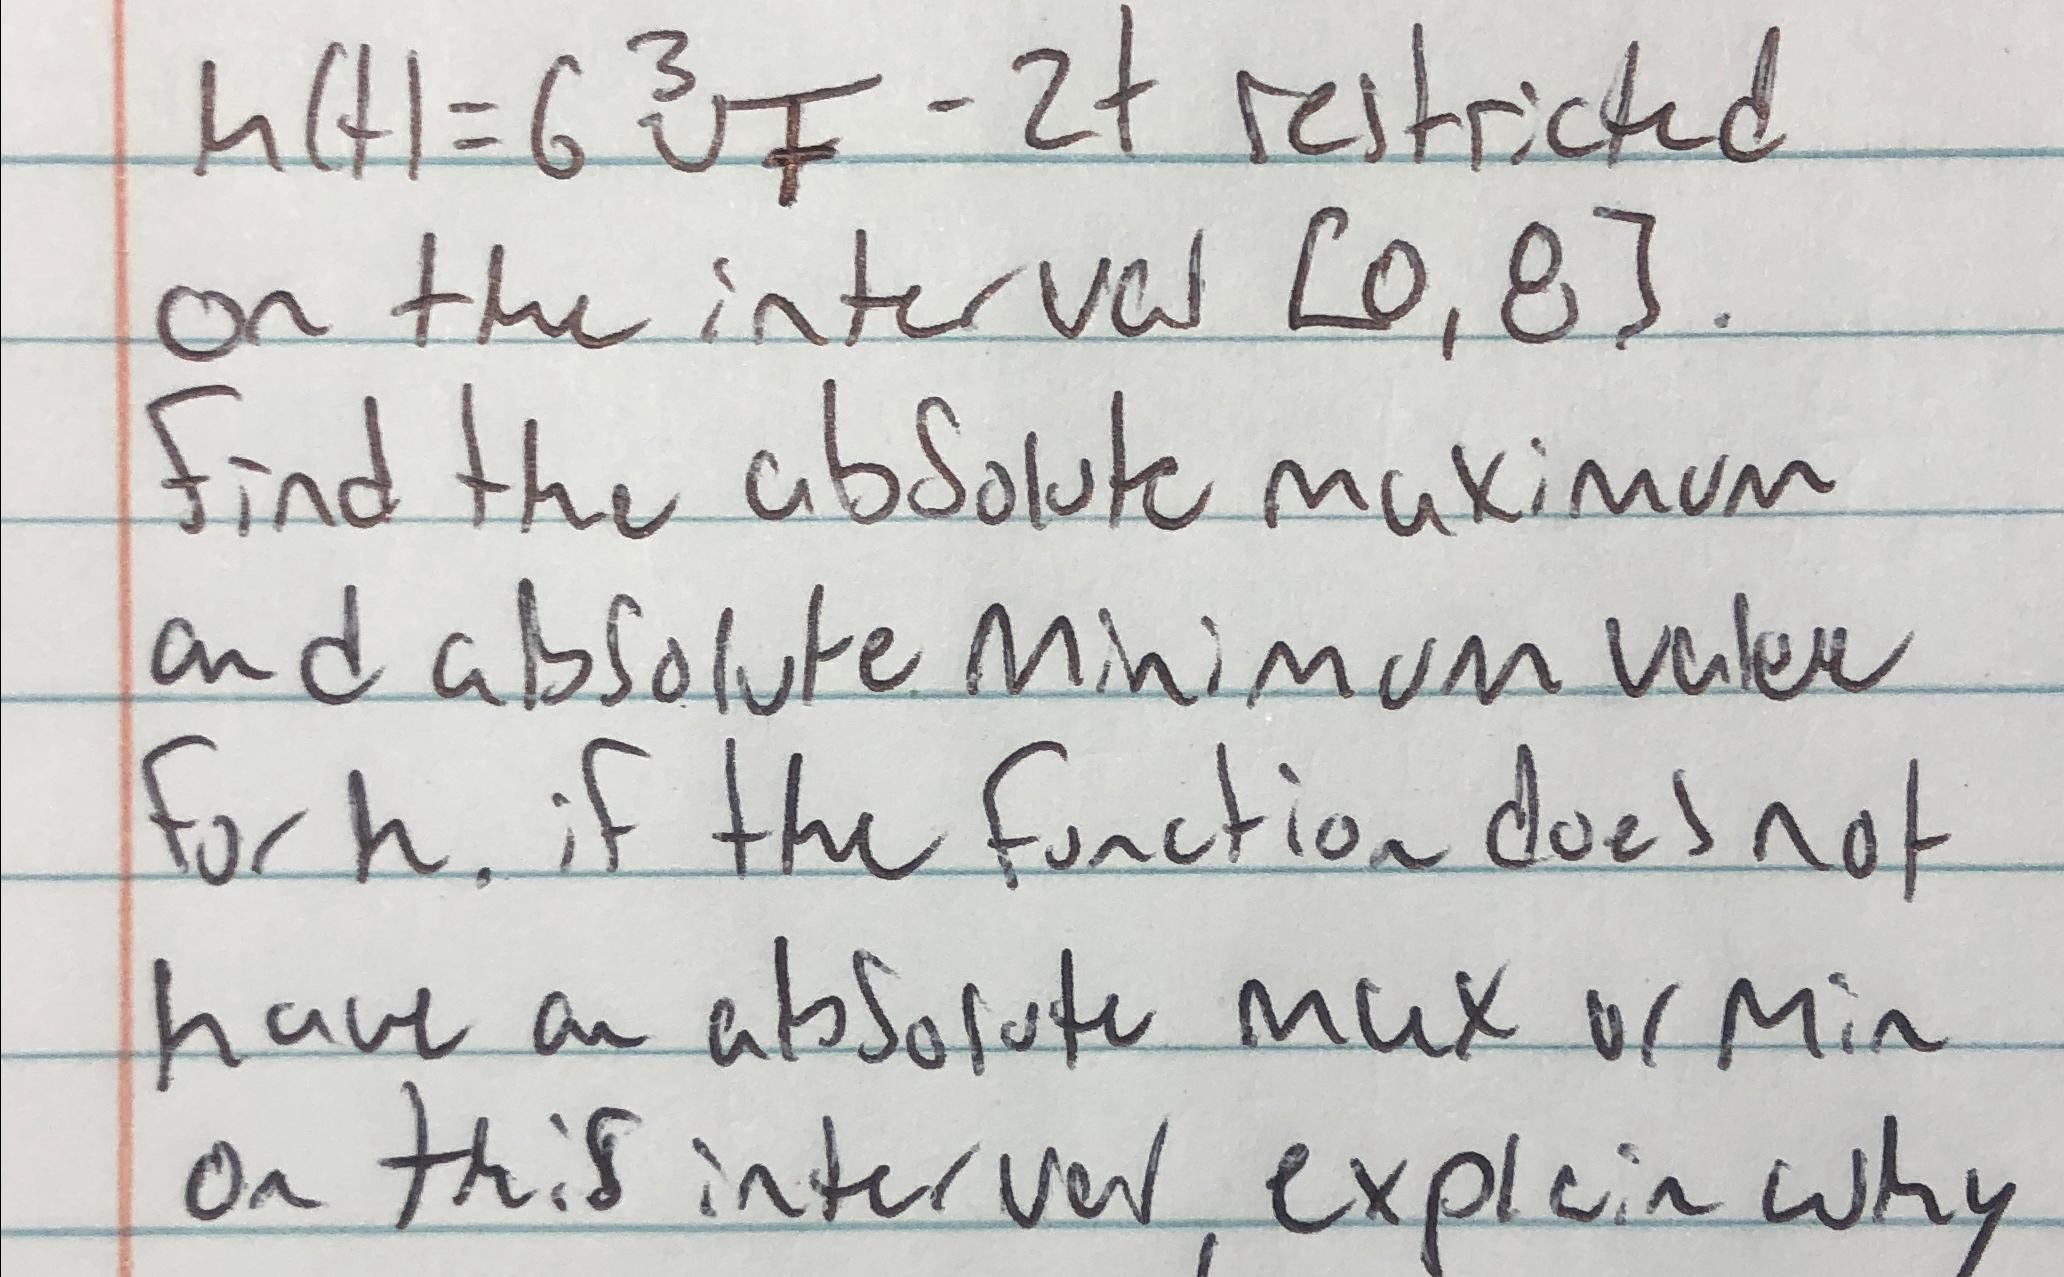 h(t)=6∛t - 2t restricted
on the interval [0,8].
Find the absolute maximum
and absolute minimum value
for h. if the function does not
have an absolute max or min
on this interval, explain why